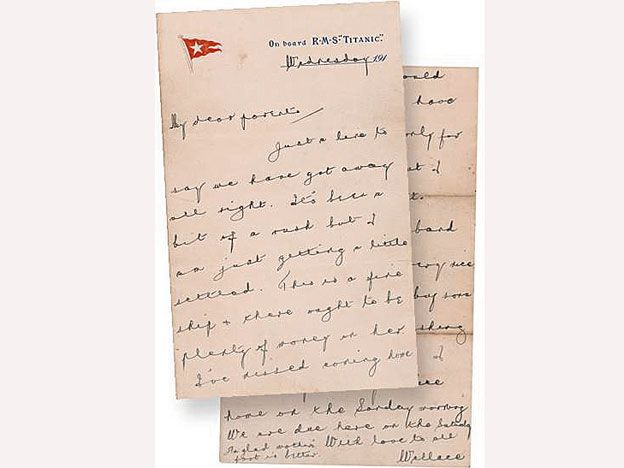 On board R·M·S "TITANIC."
Wednesday 191
My dear parents
Just a line to
say we have got away
all right. It's been a
bit of a rush but I
am just getting a little
settled. This is a fine
ship & there ought to be
plenty of money on her
I've missed coming home
have
for
I
nice
buy some
I
home on the Sunday morning
We are due here on the Saturday
glad mother's With love to all
foot is better.
Wallace